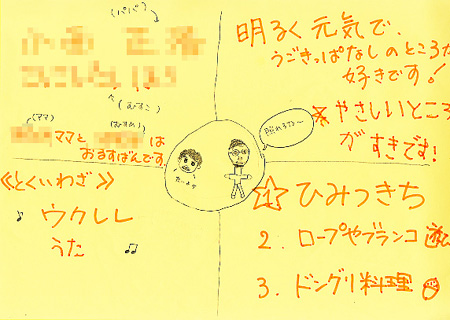 (パパ)
(むすこ)
(ママ)
(むすめ)
ママと は
おるすばんです。
明るく元気で、
うごきっぱなしのところが
好きです!
※やさしいところ
がすきです!
照れるな〜
《とくいわざ》
♪ ウクレレ
うた ♫
1 ひみつきち
2. ロープやブランコ
3. ドングリ料理